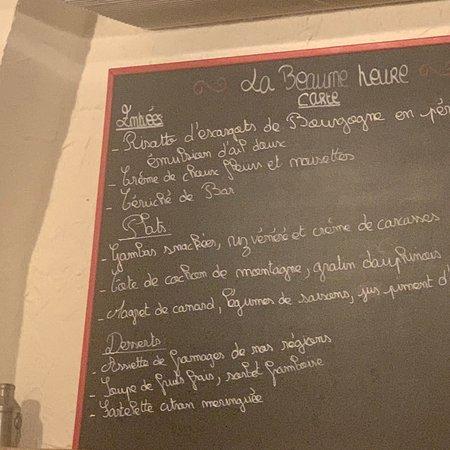 La Beaume heure
carte
Entrées
- Risotto d'escargots de Bourgogne en pér
émulsion d'ail doux
- Crème de choux fleurs et noisettes
- Céviché de Bar
Plats
- Gambas snackées, riz vénéré et crème de carcasses
- Cote de cochon de montagne, gratin dauphinois
- Magret de canard, légumes de saisons, jus piment d'
Desserts
- Assiette de fromages de nos régions
- Soupe de fruits frais, sorbet framboise
- Tartelette citron meringuée